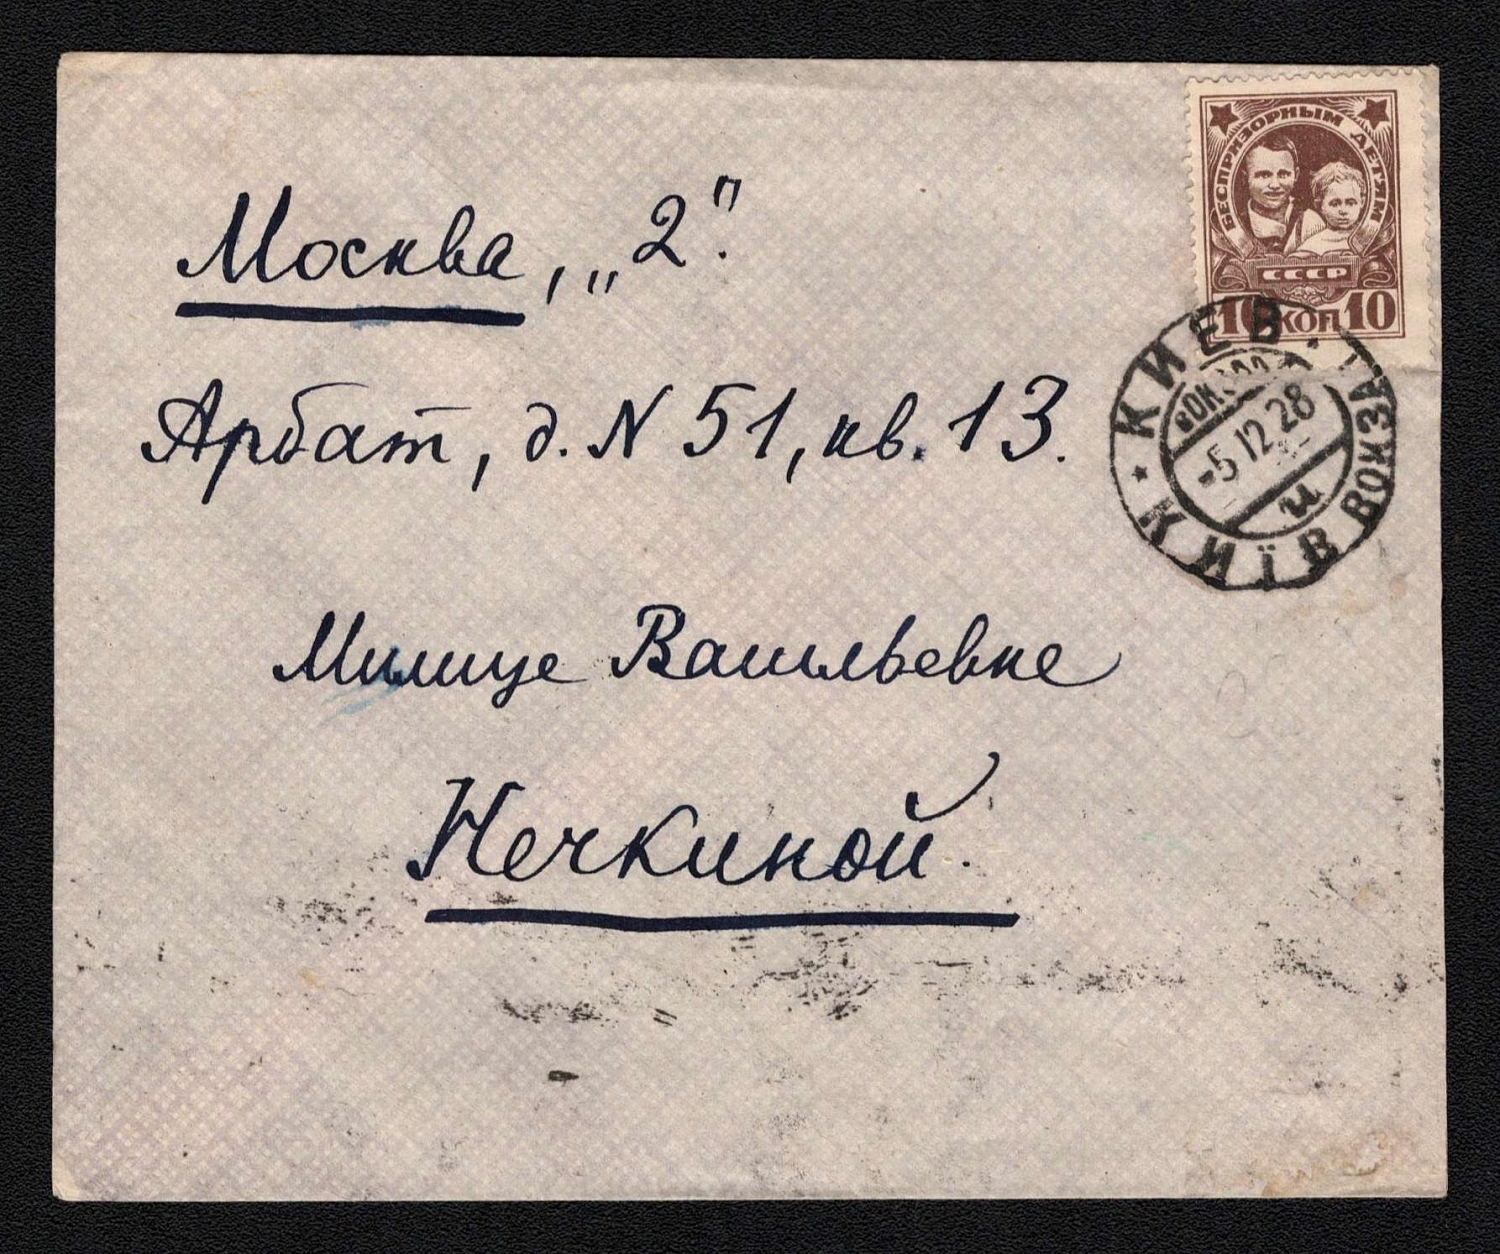 БЕСПРИЗОРНЫМ ДЕТЯМ
СССР
10 КОП 10
КИЕВ
ВОКЗАЛ
-5 12 28
и
КИЇВ ВОКЗАЛ
Москва, „2".
Арбат, д. N 51, кв. 13.
Милице Васильевне
Нечкиной.